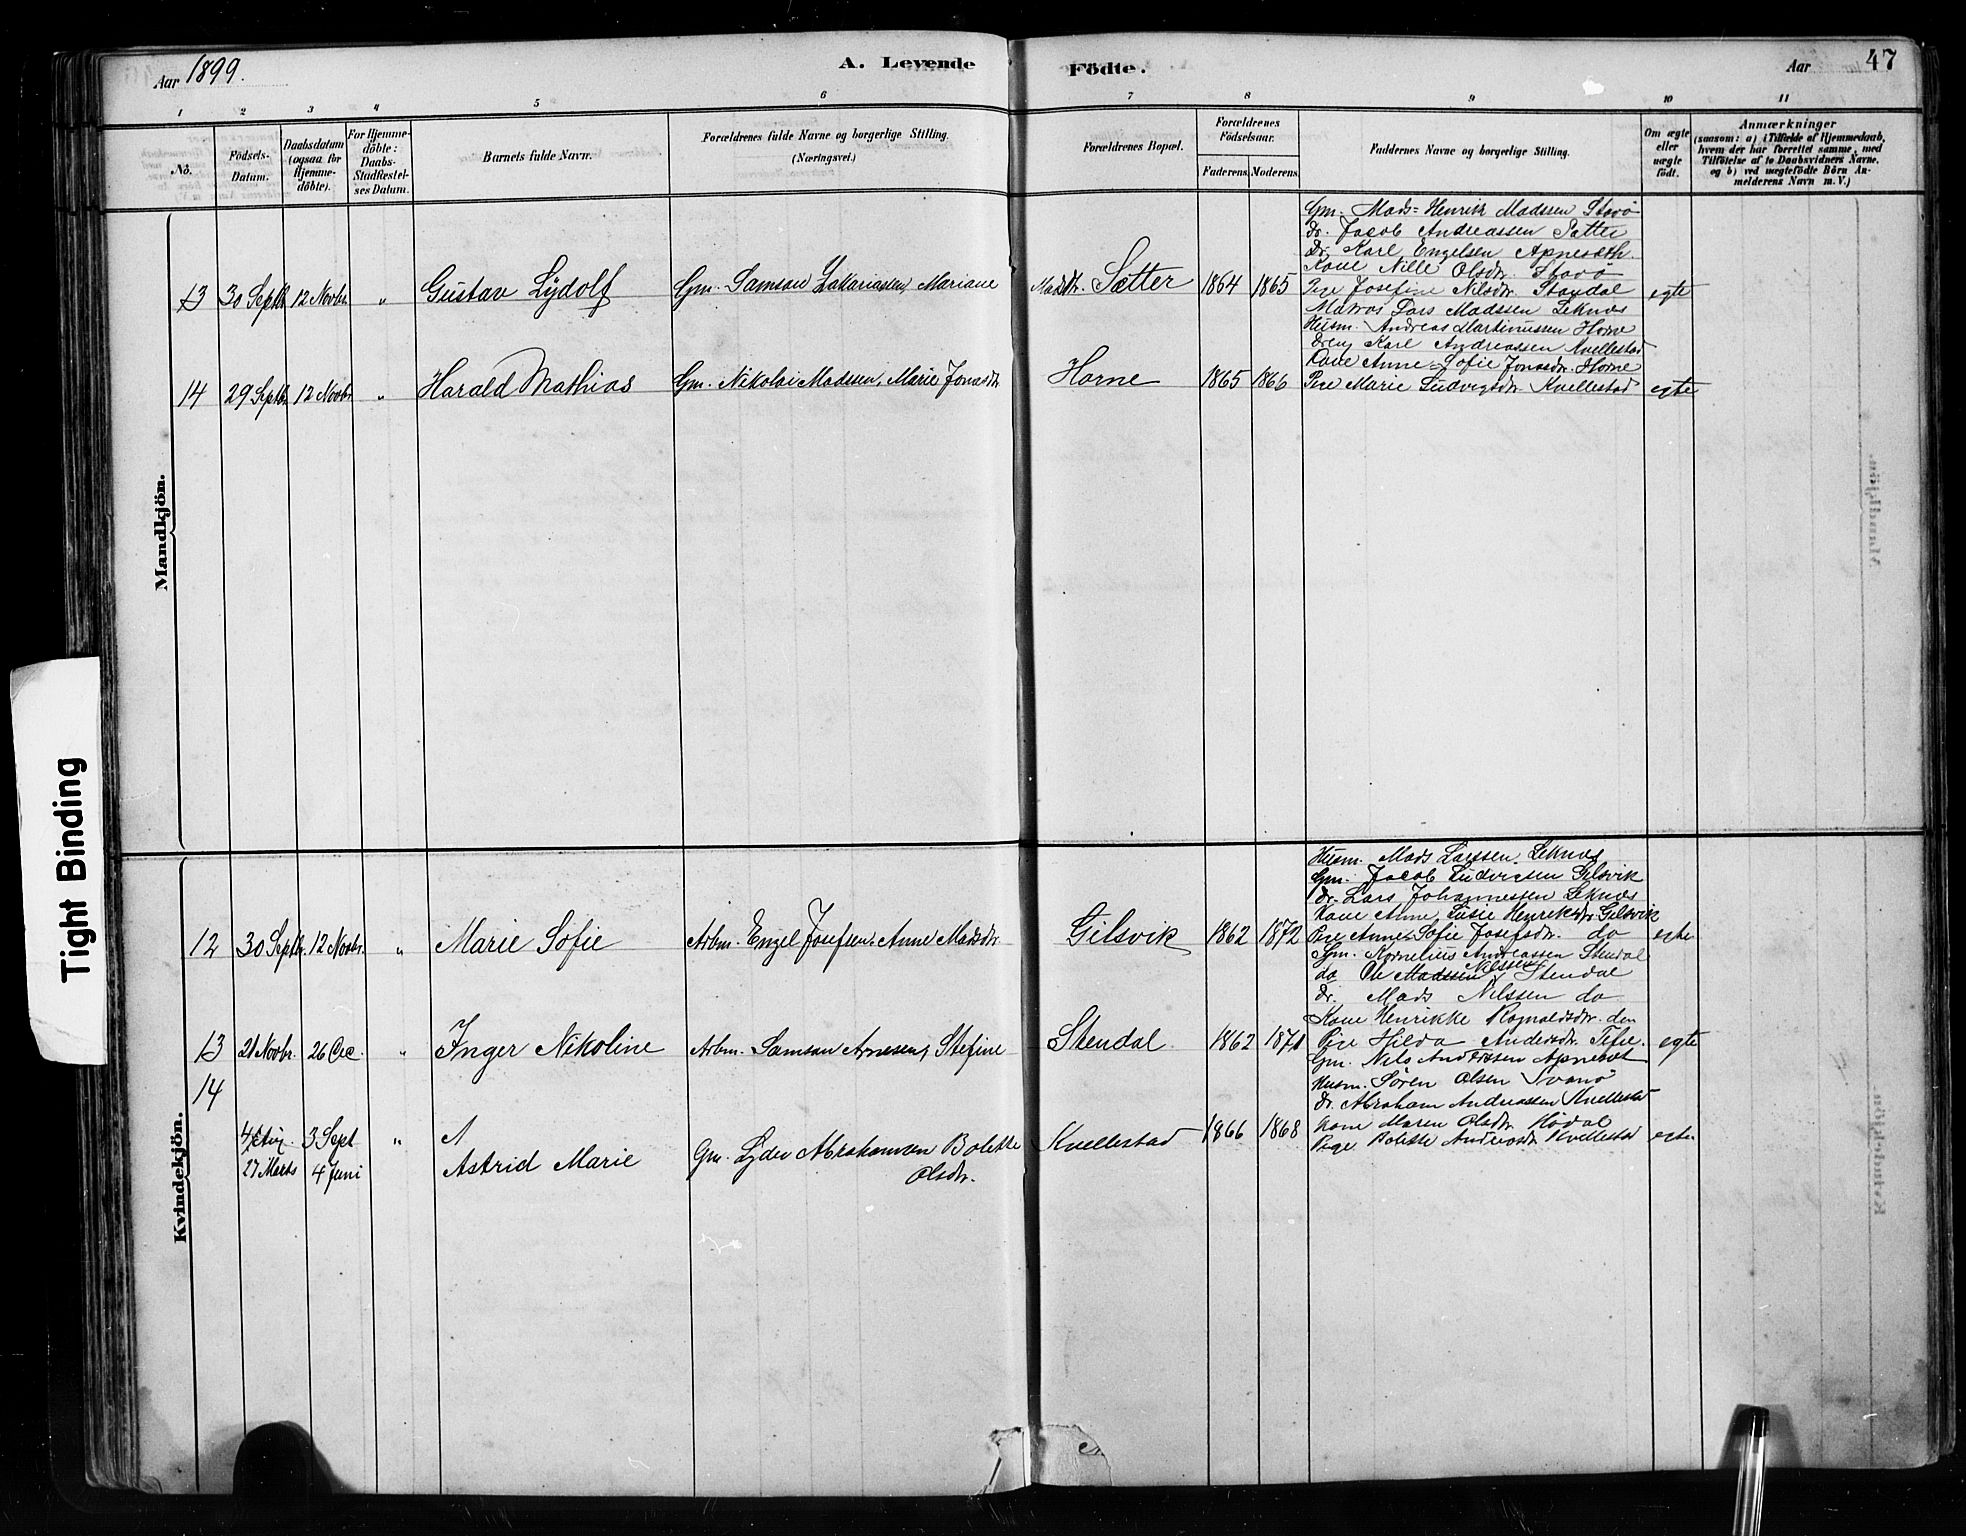 Aar 1899.
A. Levende
Födte.
Aar
47
1 2 3 4 5 6 7 8 9 10 11
No.
Födsels-
Datum.
Daabsdatum
(ogsaa for
Hjemme-
döbte).
For Hjemme-
döbte:
Daabs-
Stadfæstel-
ses Datum.
Barnets fulde Navn.
Forældrenes fulde Navne og borgerlige Stilling.
(Næringsvei.)
Forældrenes Bopæl.
Forældrenes
Födselsaar.
Faderens. Moderens.
Faddernes Navne og borgerlige Stilling.
Om ægte
eller
uægte
født.
Anmærkninger
(saasom: a) i Tilfælde af Hjemmedaab,
hvem der har forrettet samme, med
Tilföielse af to Daabsvidners Navne,
og b) ved uægtefödte Börn An-
melderens Navn m. V.)
Mandkjön.
13 30 Septbr. 12 Novbr. " Gustav Lydolf Gm. Samson Zakariassen, Mariane Madsdtr. Sætter 1864 1865 egte
Gm. Mads-Henrik Madssen Stavø
Dr. Jacob Andreassen Sætter
Dr. Karl Engelsen Apneseth.
Kone Nille Olsdtr. Stavø
Pige Josefine Nilsdtr. Standal
14 29 Septbr. 12 Novbr. " Harald Mathias Gm. Nikolai Madssen, Marie Jonasdtr. Horne 1865 1866 egte
Matros Lars Madssen Leknes
Husm. Andreas Martinussen Horne
Dreng Karl Andreassen Kvellestad
Kone Anne-Sofie Jonasdtr. Horne
Pige Marie Ludvigsdtr. Kvellestad
Kvindekjön.
12 30 Septbr. 12 Novbr. " Marie Sofie Arbm. Engel Josefsen, Anne Madsdtr. Gilsvik 1862 1872 egte
Husm. Mads Larssen Leknes
Gm. Jacob Ludvigsen Gilsvik
Dr. Lars Johannessen Leknes
Kone Anne Lusie Henriksdtr. Gilsvik
Pige Anne Sofie Josefsdtr. do
13 21 Novbr. 26 Dec. " Inger Nikoline Arbm. Samson Arnesen, Stefine Stendal 1862 1871 egte
Gm. Kornelius Andreassen Stendal
do Ole Madssen Nilssen Stendal
Dr. Mads Nilssen do
Kone Henrikke Rognaldsdtr. do
Pige Hilda Andersdtr.
14
4 Aug. 3 Sept " A
27 Marts 4 Juni Astrid Marie Gm. Lyder Abrahamsen Bolette
Olsdtr.
Kvellestad 1866 1868 egte
Gm. Nils Anderssen Apneset
Husm. Sören Olsen Svanö
Dr. Abraham Andreassen Kvellestad
Kone Maren Olsdtr. Hödal
Pige Bolette Andreasdtr. Kvellestad
Tight Binding